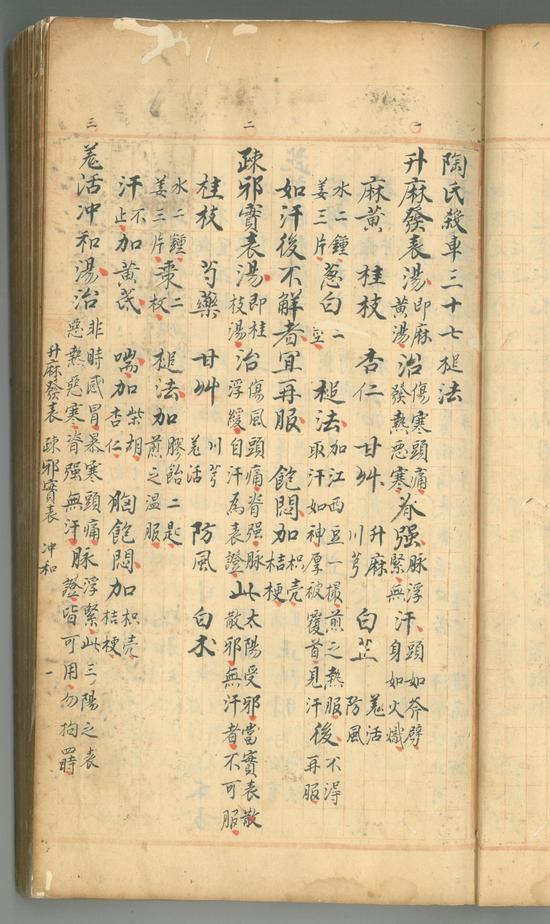 陶氏殺車三十七槌法
一
升麻發表湯 即麻黄湯 治 傷寒頭痛發熱惡寒 脊强 脉浮緊無 汗 頭如斧劈身如火熾
麻黄 桂枝 杏仁 甘艸 升麻 川芎 白芷 羌活 防風
水二鍾 姜三片 葱白二 莖 槌法 加江西豆一撮煎之熱服 取汗如神厚被覆首見汗 後 不得再服
如汗後不解者宜再服 飽悶加 枳壳 桔梗
二
疎邪實表湯 即桂枝湯 治 傷風頭痛脊强脉浮緩自汗為表證 此 太陽受邪當實表散散邪無汗者不可服
桂枝 芍藥 甘艸 川芎 羌活 防風 白术
水二鍾 姜三片 棗二枚 槌法加 膠飴二匙煎之温服
汗不止加黄芪 喘加 柴胡 杏仁 胸飽悶加 枳壳 桔梗
三
羌活冲和湯治 非時感冒暴寒頭痛惡熱惡寒脊强無汗 脉 浮緊此三陽之表證皆可用勿拘四時
升麻發表 疎邪實表 冲和 一